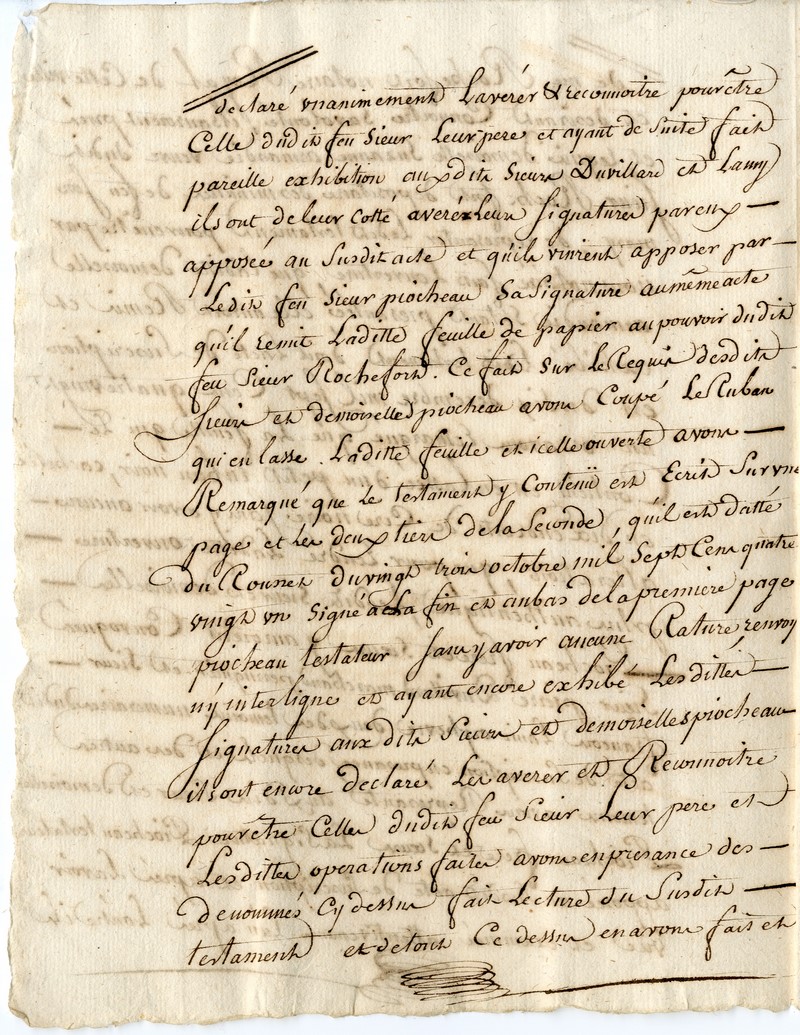 declaré unanimement Laverér & reconnoitre pour être
Celle dudit feu Sieur Leur pere et ayant de Suite fait
pareille exhibition auxdits Sieurs Duvillard et Lamy
ils ont de leur Cotté averéx Leurs Signatures par eux —
apposée au Susdit acte et quils vinrent apposer par —
Ledit feu Sieur piocheau Sa Signature au même acte
qu'il remit Laditte feuille de papier au pouvoir dudit
feu Sieur Rochefort. Ce fait Sur le Requis desdits
Sieurs et demoiselles piocheau avons Coupé Le Ruban
qui enlasse. Laditte feuille et icelle ouverte avons —
Remarqué que Le testament y Contenüe est Ecrit Sur une
page et les deux tiers de la Seconde, qu'il est datté
du vingt trois octobre mil Sept Cens quatre
vingt un Signé a La fin et au bas de la premiere page
piocheau testateur Sans y avoir aucune Rature, renvoy
n'y interligne et ayant encore exhibé Lesdittes —
Signatures aux dits Sieurs et demoiselles piocheau
ils ont encore declaré Les averer et Reconnoitre
pour être Celles dudit feu Sieur Leur pere et
Lesdittes operations faites avons en presance des —
denommés Cy dessus fait Lecture du Susdit —
testament et de tout Ce dessus en avons fait et